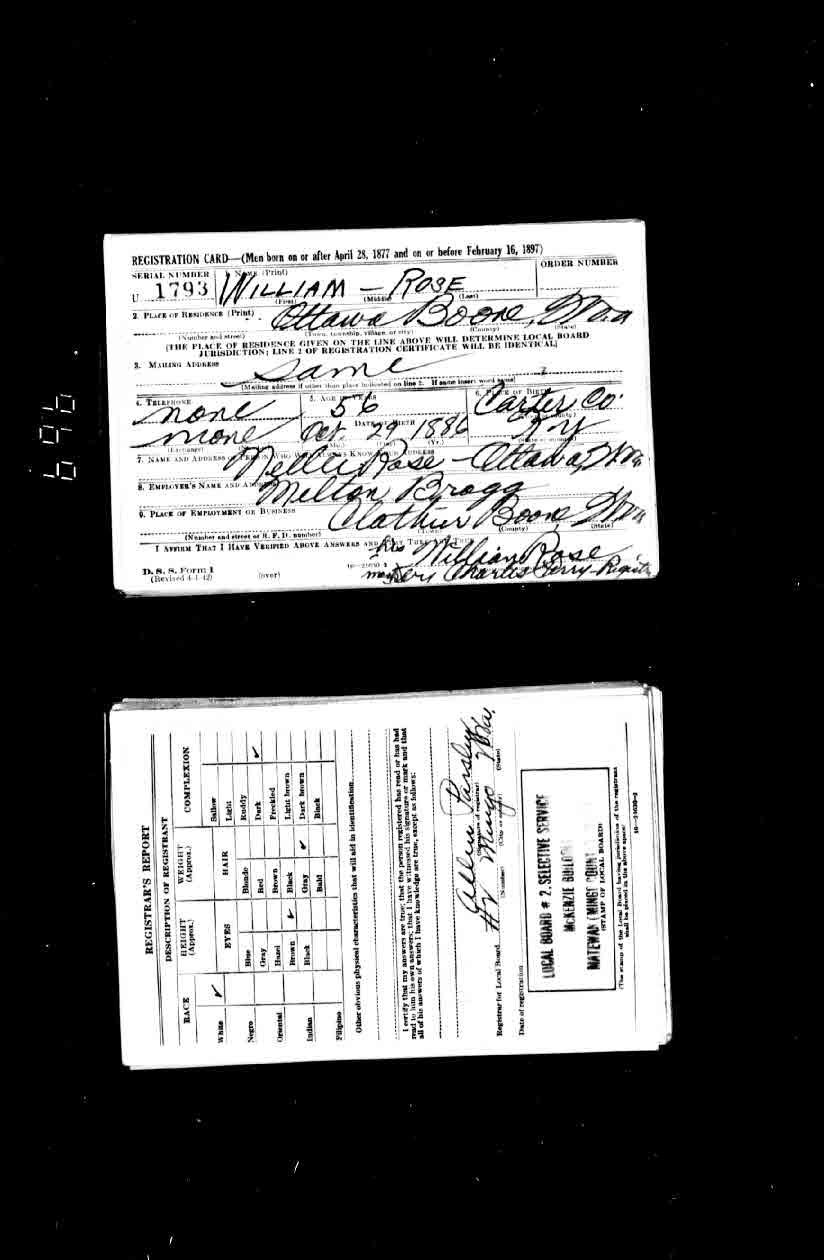 696
REGISTRATION CARD—(Men born on or after April 28, 1877 and on or before February 16, 1897)
SERIAL NUMBER 1. NAME (Print) ORDER NUMBER
U 1793 WILLIAM — ROSE
(First) (Middle) (Last)
2. PLACE OF RESIDENCE (Print)
Ottawa Boone, W Va
(Number and street) (Town, township, village, or city) (County) (State)
(THE PLACE OF RESIDENCE GIVEN ON THE LINE ABOVE WILL DETERMINE LOCAL BOARD
JURISDICTION; LINE 2 OF REGISTRATION CERTIFICATE WILL BE IDENTICAL)
3. MAILING ADDRESS
Same
(Mailing address if other than place indicated on line 2. If same insert word same)
4. TELEPHONE 5. AGE IN YEARS 6. PLACE OF BIRTH
none 56 Carter Co.
DATE OF BIRTH
none Oct. 29 1886 Ky
(Exchange) (Mo.) (Yr.)
7. NAME AND ADDRESS OF PERSON WHO WILL ALWAYS KNOW YOUR ADDRESS
Nellie Rose — Ottawa, W Va
8. EMPLOYER'S NAME AND ADDRESS
Melton Bragg
9. PLACE OF EMPLOYMENT OR BUSINESS
Boone W Va
(Number and street or R. F. D. number) (Town) (County) (State)
I AFFIRM THAT I HAVE VERIFIED ABOVE ANSWERS AND THAT THEY ARE TRUE
his William Rose
D. S. S. Form 1
(Revised 4-1-42) (over) 16—21630-2
mark by Charles Perry—Registr
REGISTRAR'S REPORT
DESCRIPTION OF REGISTRANT
RACE HEIGHT (Approx.) WEIGHT (Approx.) COMPLEXION
EYES HAIR
White ✓ Sallow
Light
Negro Blue Blonde Ruddy
Gray Red Dark ✓
Oriental Hazel Brown Freckled
Brown ✓ Black Light brown
Indian Black Gray ✓ Dark brown
Bald Black
Filipino
Other obvious physical characteristics that will aid in identification
I certify that my answers are true; that the person registered has read or has had
read to him his own answers; that I have witnessed his signature or mark and that
all of his answers of which I have knowledge are true, except as follows:
Parsley
(Signature of registrar)
Registrar for Local Board #2 Mingo W.Va.
(Number) (City or county) (State)
Date of registration
LOCAL BOARD # 2, SELECTIVE SERVICE
MCKENZIE BUILDING
MATEWAN (MINGO COUNTY
(STAMP OF LOCAL BOARD)
(The stamp of the Local Board having jurisdiction of the registrant
shall be placed in the above space)
16—21630-2